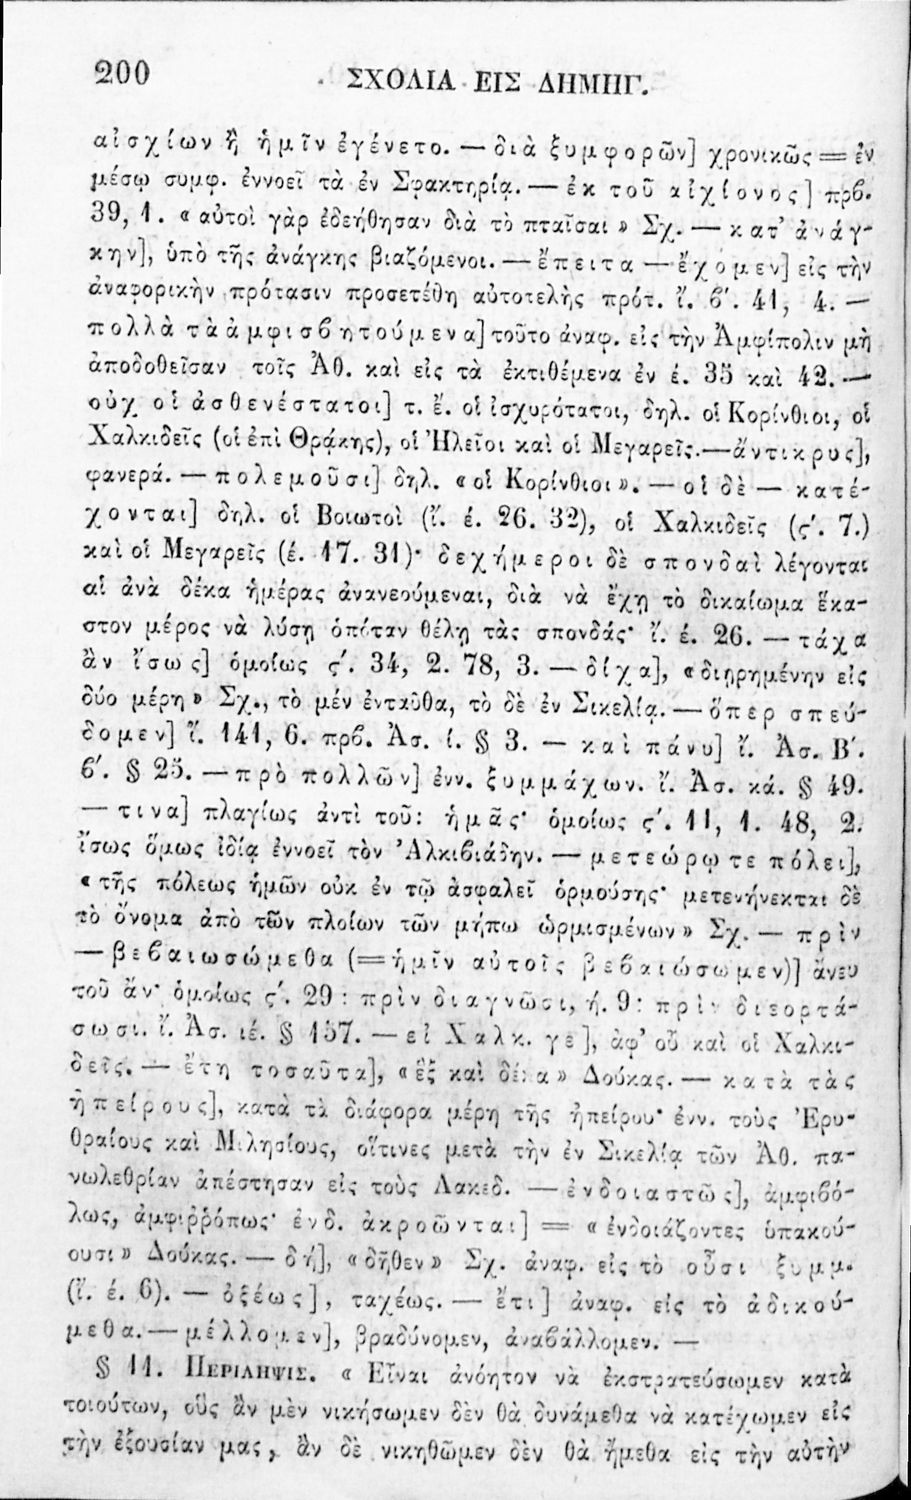 200 ΣΧΟΛΙΑ ΕΙΣ ΔΗΜΗΓ.
αἰσχίων ἢ ἡμῖν ἐγένετο. — διὰ ξυμφορῶν] χρονικῶς = ἐν
μέσῳ συμφ. ἐννοεῖ τὰ ἐν Σφακτηρίᾳ. — ἐκ τοῦ αἰχίονος] πρβ.
39, 1. « αὐτοὶ γὰρ ἐδεήθησαν διὰ τὸ πταῖσαι » Σχ. — κατ' ἀνάγ-
κην], ὑπὸ τῆς ἀνάγκης βιαζόμενοι. — ἔπειτα — ἔχομεν] εἰς τὴν
ἀναφορικὴν πρότασιν προσετέθη αὐτοτελὴς πρότ. ἴ. β'. 41, 4. —
πολλὰ τὰ ἀμφισβητούμενα] τοῦτο ἀναφ. εἰς τὴν Ἀμφίπολιν μὴ
ἀποδοθεῖσαν τοῖς Ἀθ. καὶ εἰς τὰ ἐκτιθέμενα ἐν έ. 35 καὶ 42. —
οὐχ οἱ ἀσθενέστατοι] τ. ἔ. οἱ ἰσχυρότατοι, δηλ. οἱ Κορίνθιοι, οἱ
Χαλκιδεῖς (οἱ ἐπὶ Θρᾴκης), οἱ Ἠλεῖοι καὶ οἱ Μεγαρεῖς. — ἄντικρυς],
φανερά. — πολεμοῦσι] δηλ. « οἱ Κορίνθιοι ». — οἱ δὲ — κατέ-
χονται] δηλ. οἱ Βοιωτοὶ (ἴ. έ. 26. 32), οἱ Χαλκιδεῖς (ς'. 7.)
καὶ οἱ Μεγαρεῖς (έ. 17. 31)· δεχήμεροι δὲ σπονδαὶ λέγονται
αἱ ἀνὰ δέκα ἡμέρας ἀνανεούμεναι, διὰ νὰ ἔχῃ τὸ δικαίωμα ἕκα-
στον μέρος νὰ λύσῃ ὁπόταν θέλῃ τὰς σπονδάς· ἴ. έ. 26. — τάχα
ἂν ἴσως] ὁμοίως ς'. 34, 2. 78, 3. — δίχα], « διῃρημένην εἰς
δύο μέρη » Σχ., τὸ μέν ἐνταῦθα, τὸ δὲ ἐν Σικελίᾳ. — ὅπερ σπεύ-
δομεν] ἴ. 141, 6. πρβ. Ἀσ. ί. § 3. — καὶ πάνυ] ἴ. Ἀσ. Β'.
β'. § 25. — πρὸ πολλῶν] ἐνν. ξυμμάχων. ἴ. Ἀσ. κά. § 49.
— τινα] πλαγίως ἀντὶ τοῦ: ἡμᾶς· ὁμοίως ς'. 11, 1. 48, 2.
ἴσως ὅμως ἰδίᾳ ἐννοεῖ τὸν Ἀλκιβιάδην. — μετεώρῳ τε πόλει],
« τῆς πόλεως ἡμῶν οὐκ ἐν τῷ ἀσφαλεῖ ὁρμούσης· μετενήνεκται δὲ
τὸ ὄνομα ἀπὸ τῶν πλοίων τῶν μήπω ὡρμισμένων » Σχ. — πρὶν
— βεβαιωσώμεθα (= ἡμῖν αὐτοῖς βεβαιώσωμεν)] ἄνευ
τοῦ ἄν· ὁμοίως ς'. 29 : πρὶν διαγνῶσι, ή. 9 : πρὶν διεορτά-
σωσι. ἴ. Ἀσ. ιέ. § 157. — εἰ Χαλκ. γε], ἀφ' οὗ καὶ οἱ Χαλκι-
δεῖς. — ἔτη τοσαῦτα], « ἓξ καὶ δέκα » Δούκας. — κατὰ τὰς
ἠπείρους], κατὰ τὰ διάφορα μέρη τῆς ἠπείρου· ἐνν. τοὺς Ἐρυ-
θραίους καὶ Μιλησίους, οἵτινες μετὰ τὴν ἐν Σικελίᾳ τῶν Ἀθ. πα-
νωλεθρίαν ἀπέστησαν εἰς τοὺς Λακεδ. — ἐνδοιαστῶς], ἀμφιβό-
λως, ἀμφιῤῥόπως· ἐνδ. ἀκροῶνται] = « ἐνδοιάζοντες ὑπακού-
ουσι » Δούκας. — δή], « δῆθεν » Σχ. ἀναφ. εἰς τὸ οὖσι ξυμμ.
(ἴ. έ. 6). — ὀξέως], ταχέως. — ἔτι] ἀναφ. εἰς τὸ ἀδικού-
μεθα. — μέλλομεν], βραδύνομεν, ἀναβάλλομεν. —
§ 11. ΠΕΡΙΛΗΨΙΣ. « Εἶναι ἀνόητον νὰ ἐκστρατεύσωμεν κατὰ
τοιούτων, οὓς ἂν μὲν νικήσωμεν δὲν θὰ δυνάμεθα νὰ κατέχωμεν εἰς
τὴν ἐξουσίαν μας, ἂν δὲ νικηθῶμεν δὲν θὰ ἤμεθα εἰς τὴν αὐτὴν